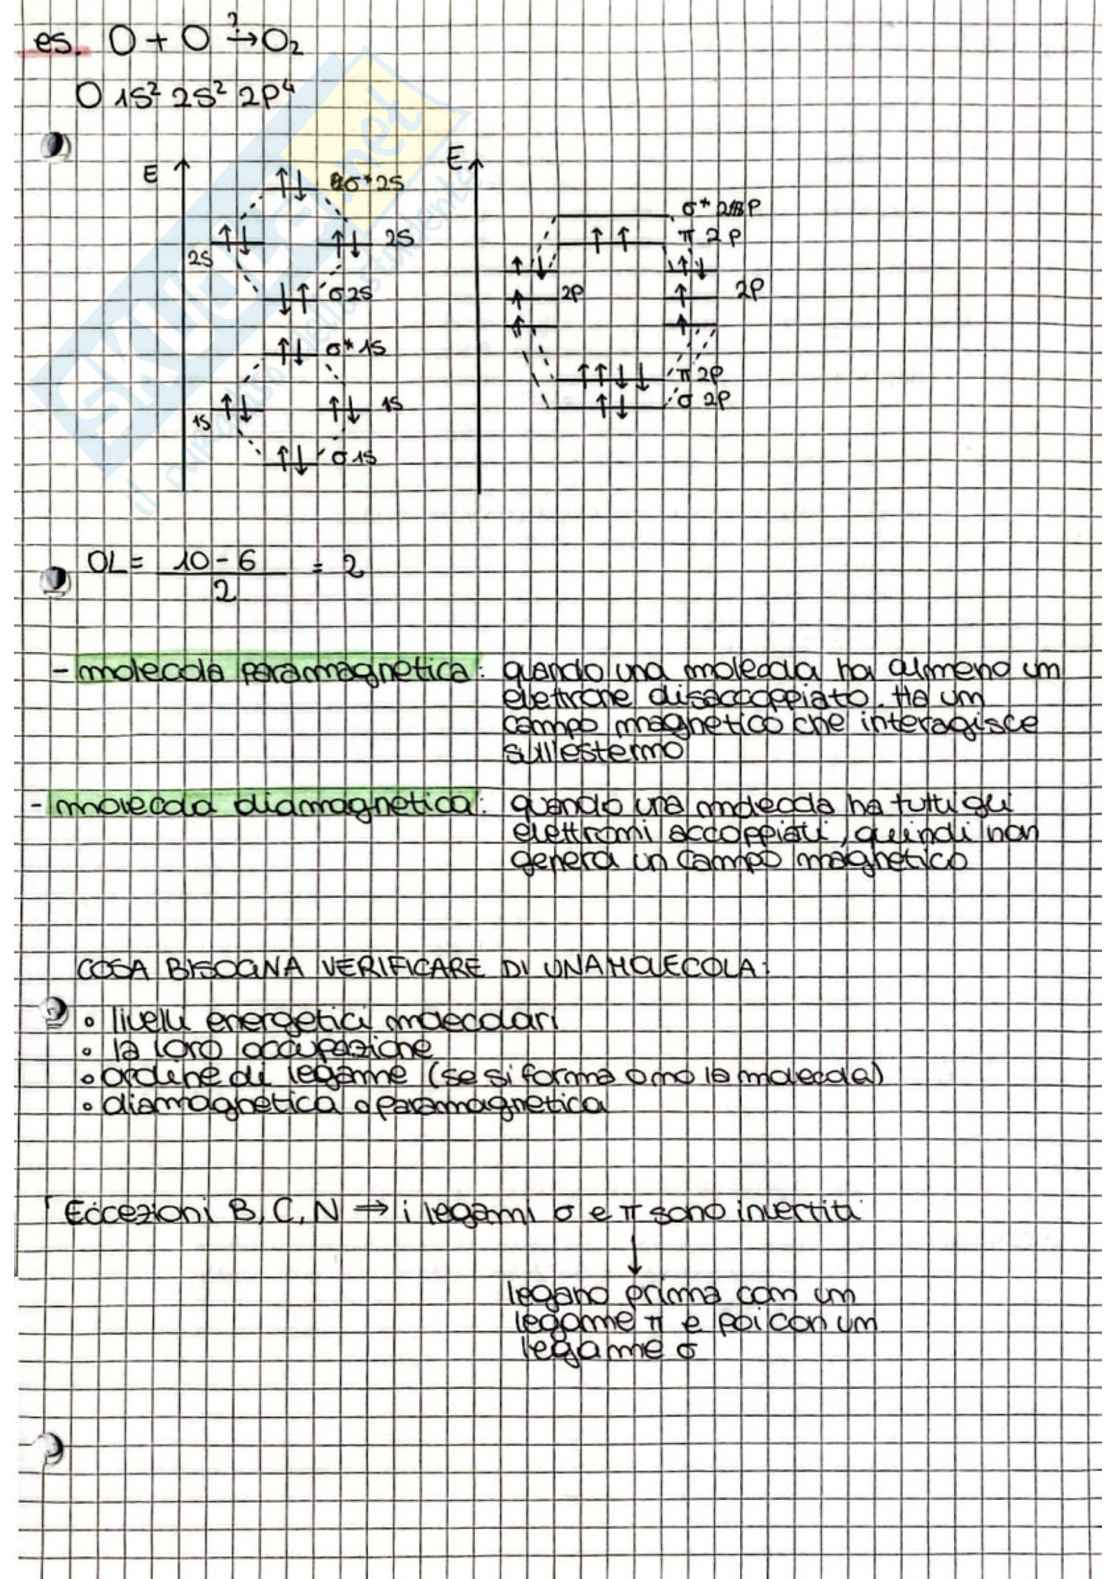 es. O + O ?→ O₂
O 1S² 2S² 2P⁴
E ↑
σ* 2S
2S
2S
σ 2S
σ* 1S
1S
1S
σ 1S
E ↑
σ* 2P
π 2P
2P
2P
π 2P
σ 2P
OL = 10 - 6 / 2 = 2
- molecola paramagnetica: quando una molecola ha almeno un
elettrone disaccoppiato. Ha un
campo magnetico che interagisce
sull'esterno
- molecola diamagnetica: quando una molecola ha tutti gli
elettroni accoppiati, quindi non
genera un campo magnetico
COSA BISOGNA VERIFICARE DI UNA MOLECOLA:
• livelli energetici molecolari
• la loro occupazione
• ordine di legame (se si forma o no la molecola)
• diamagnetica o paramagnetica
Eccezioni B, C, N ⇒ i legami σ e π sono invertiti
↓
legano prima con un
legame π e poi con un
legame σ